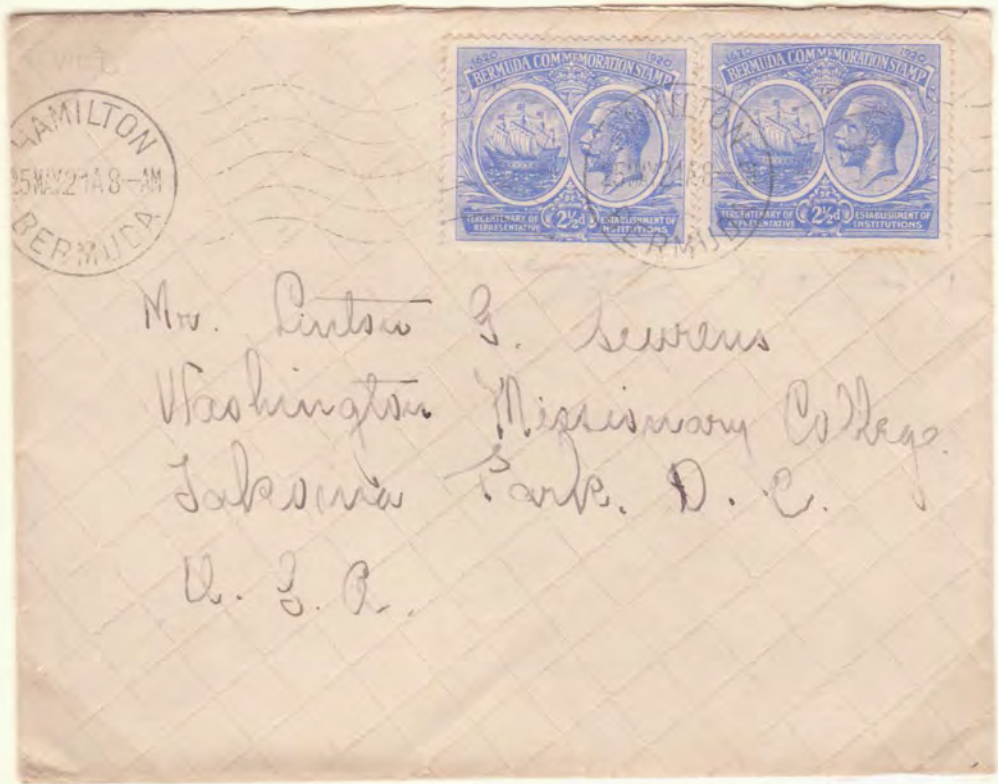 HAMILTON
25MAY21A8-AM
BERMUDA
1620 1920
BERMUDA COMMEMORATION STAMP
TERCENTENARY OF REPRESENTATIVE 2½d ESTABLISHMENT OF INSTITUTIONS
1620 1920
BERMUDA COMMEMORATION STAMP
TERCENTENARY OF REPRESENTATIVE 2½d ESTABLISHMENT OF INSTITUTIONS
HAMILTON
25MAY21A8-AM
BERMUDA
Mr. Linton G. Sevrens
Washington Missionary College.
Takoma Park. D. C.
U. S. A.